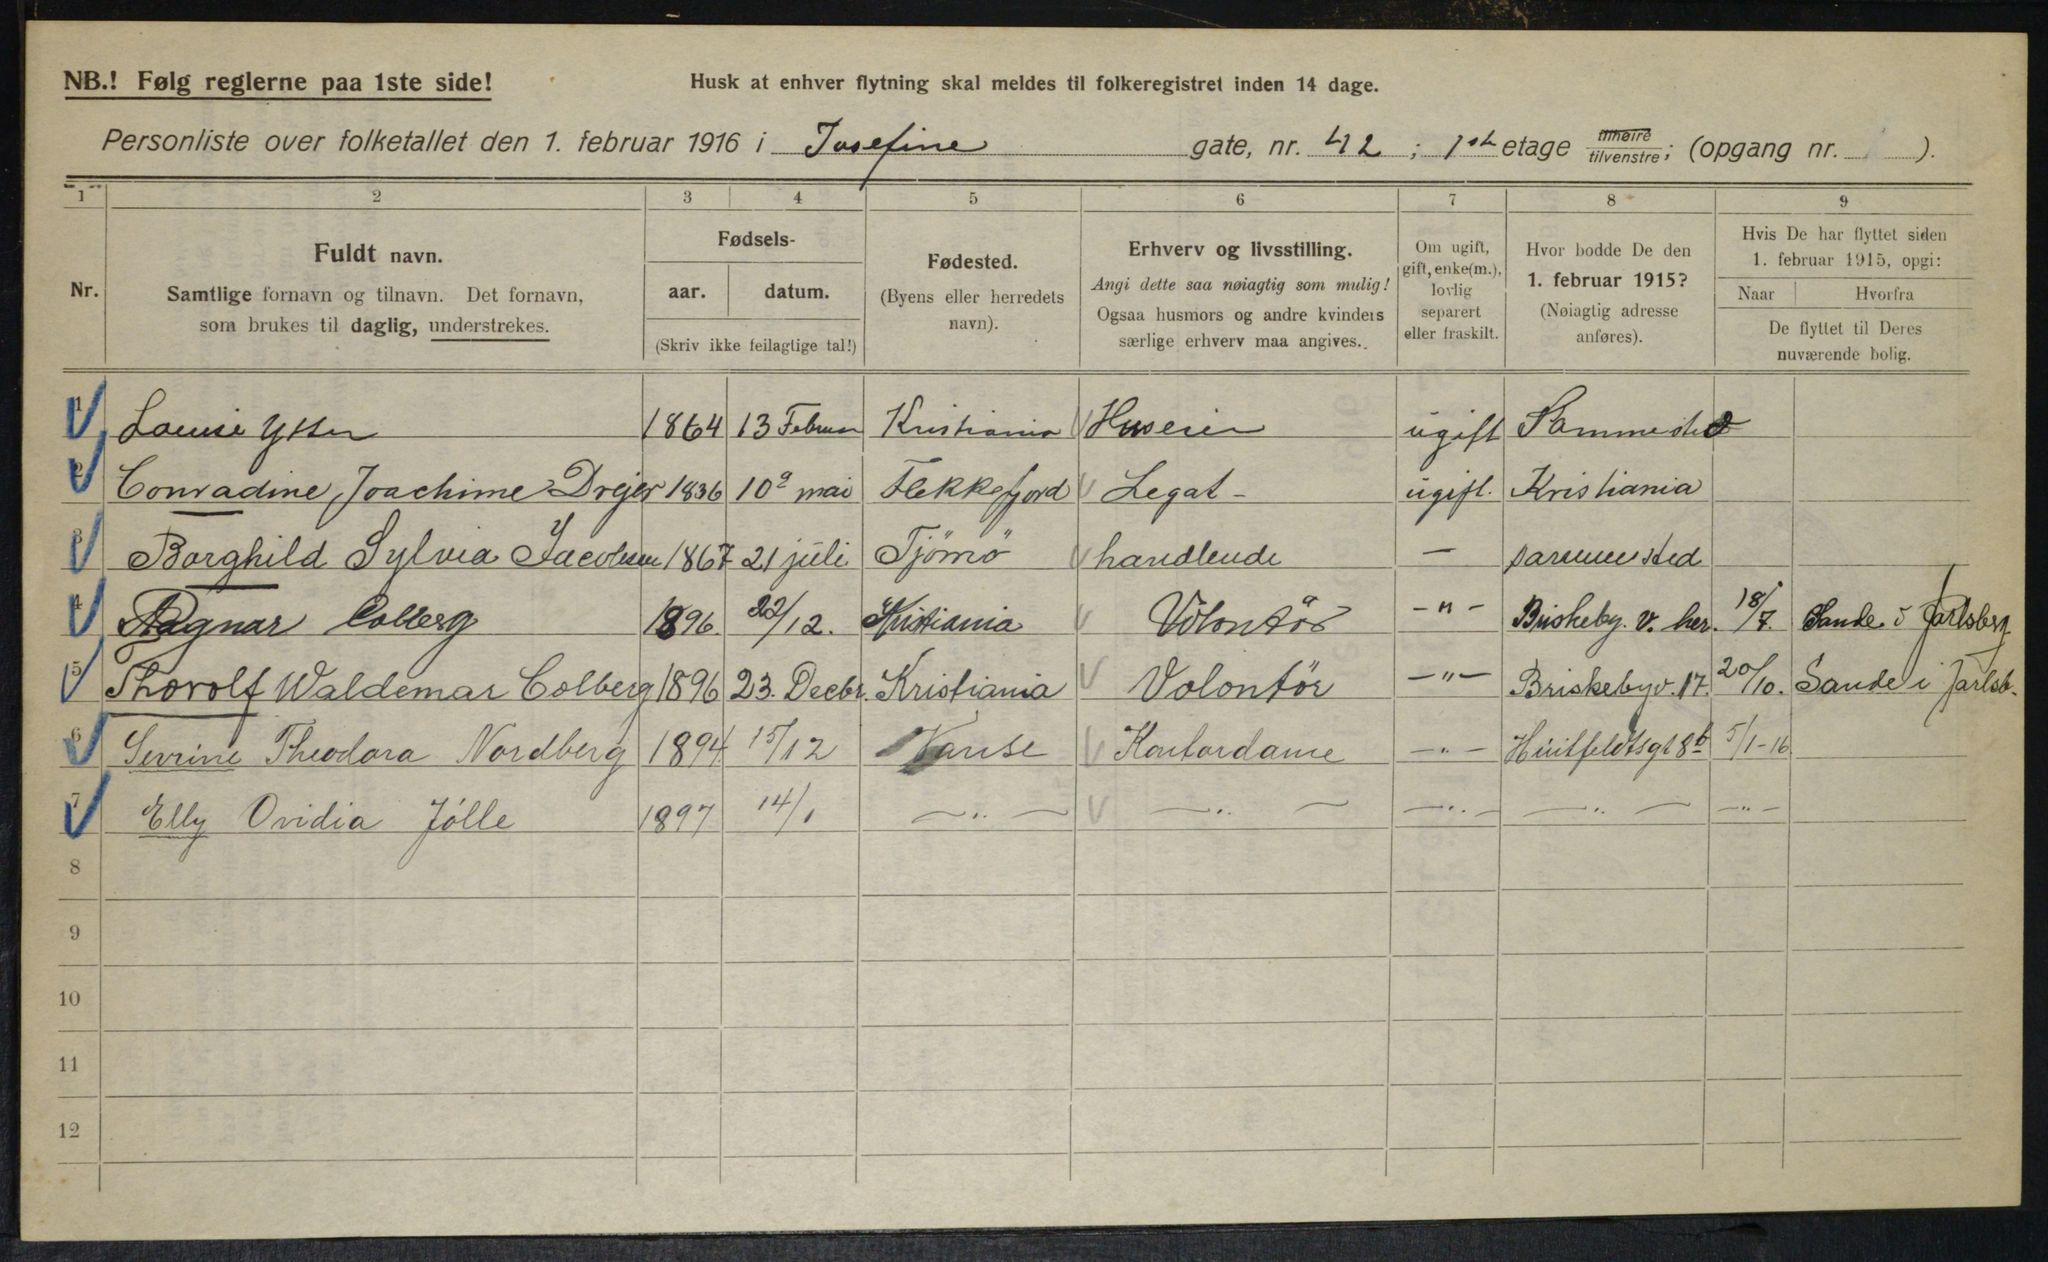 NB.! Følg reglerne paa 1ste side!
Husk at enhver flytning skal meldes til folkeregistret inden 14 dage.
Personliste over folketallet den 1. februar 1916 i Josefine gate, nr. 42 ; 1st etage tilhøire tilvenstre; (opgang nr. ).
1 2 3 4 5 6 7 8 9
Nr.
Fuldt navn.
Samtlige fornavn og tilnavn. Det fornavn,
som brukes til daglig, understrekes.
Fødsels-
aar. datum.
(Skriv ikke feilagtige tal!)
Fødested.
(Byens eller herredets
navn).
Erhverv og livsstilling.
Angi dette saa nøiagtig som mulig!
Ogsaa husmors og andre kvinders
særlige erhverv maa angives.
Om ugift,
gift, enke(m.),
lovlig
separert
eller fraskilt.
Hvor bodde De den
1. februar 1915?
(Nøiagtig adresse
anføres).
Hvis De har flyttet siden
1. februar 1915, opgi:
Naar Hvorfra
De flyttet til Deres
nuværende bolig.
1 Louise Ytter 1864 13 Februar Kristiania Huseier ugift Sammested
2 Conradine Joachime Drejer 1836 10de mai Flekkefjord Legat - ugift. Kristiania
3 Borghild Sylvia Jacobsen 1867 21 juli Tjömö handlende — sammested
4 Ragnar Colberg 1896. 22/12. Kristiania Volontör -"- Briskeby. v. her. 18/7. Sande i Jarlsberg
5 Thorolf Waldemar Colberg 1896 23. Decbr. Kristiania Volontör —"— Briskebyv. 17. 20/10. Sande i Jarlsb.
6 Sevrine Theodora Nordberg 1894 15/12 Vanse Kontordame -"- Huitfeldtsgt 8b 5/1-16
7 Elly Ovidia Jölle 1897 14/1 —"— —"— —"— —"— -"-
8
9
10
11
12